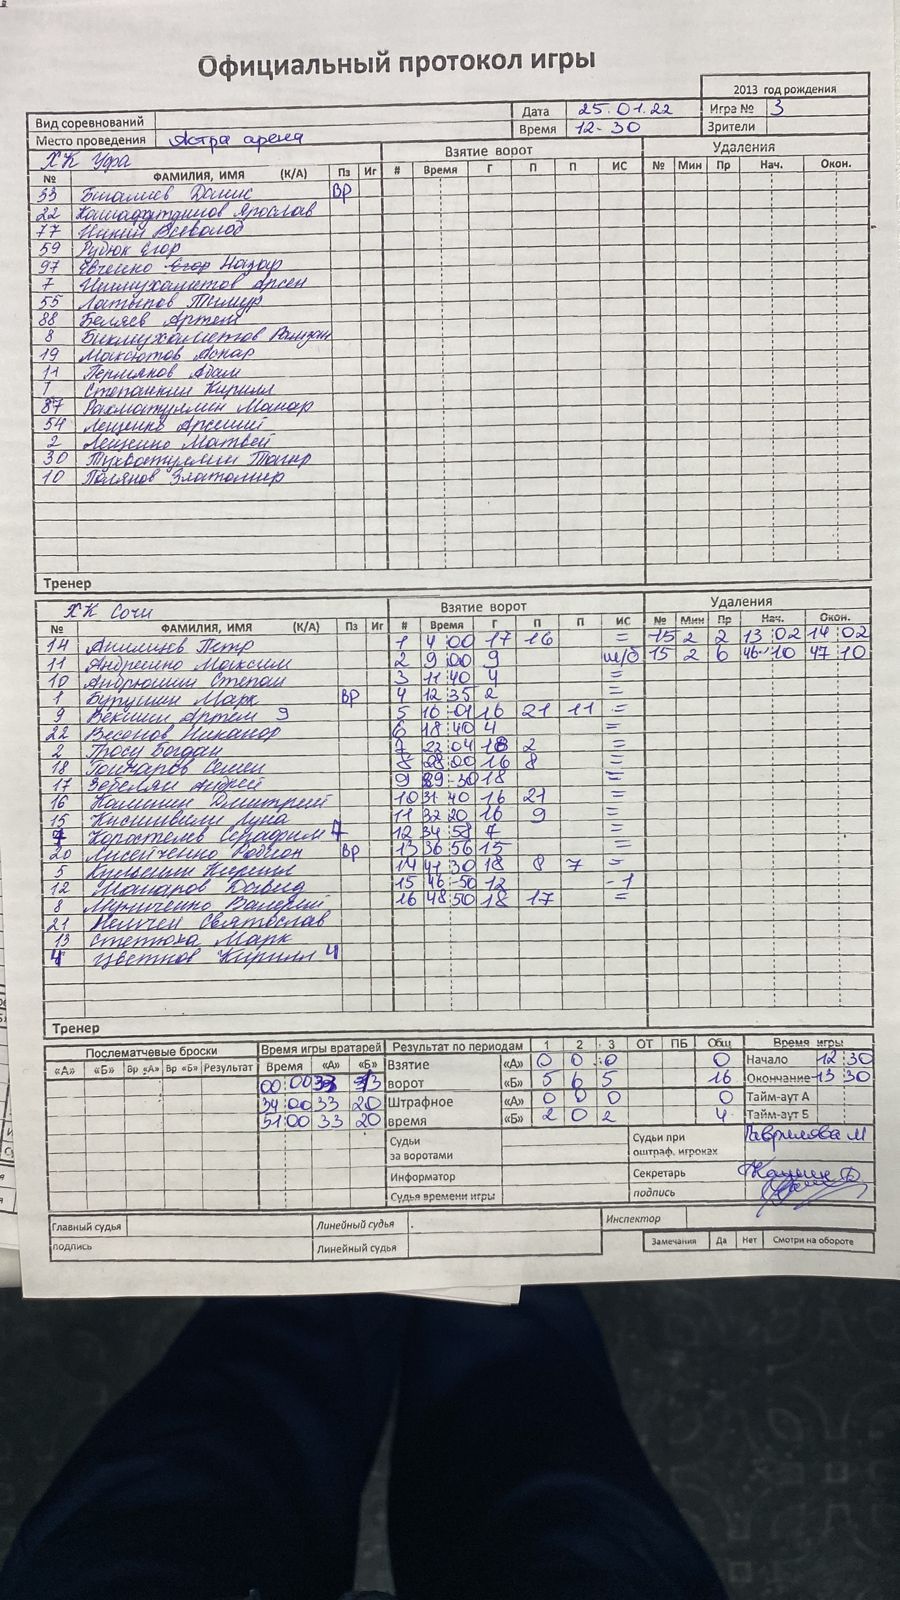 Официальный протокол игры
2013 год рождения
Вид соревнований Дата 25.01.22 Игра № 3
Место проведения Астра арена Время 12-30 Зрители
ХК Уфа Взятие ворот Удаления
№ ФАМИЛИЯ, ИМЯ (К/А) Пз Иг # Время Г П П ИС № Мин Пр Нач. Окон.
33 Данис ВР
22 Ярослав
77 Всеволод
59 Рудюк Егор
97 Евченко Егор Назар
7 Ишмухаметов Арсен
55 Латыпов Тимур
88 Беляев Артем
8 Бикмухаметов
19 Максютов Аскар
11 Пермяков Адам
1 Степанкин Кирилл
87 Рахматуллин Макар
54 Лещенко Арсений
2 Лещенко Матвей
30 Тухватуллин Тагир
10 Поляков Златомир
Тренер
ХК Сочи Взятие ворот Удаления
№ ФАМИЛИЯ, ИМЯ (К/А) Пз Иг # Время Г П П ИС № Мин Пр Нач. Окон.
14 Петр 1 4 00 17 16 = 15 2 2 13 02 14 02
11 Андреенко Максим 2 9 00 9 ш/б 15 2 6 46 10 47 10
10 Андрюшин Степан 3 11 40 4 =
1 Марк ВР 4 12 35 2 =
9 Векшин Артем 9 5 16 01 16 21 11 =
22 Никанор 6 18 40 4 =
2 Гросу Богдан 7 22 04 18 2 =
18 Гончаров Семен 8 28 00 16 8 =
17 Зобелян Андрей 9 29 30 18 =
16 Калинин Дмитрий 10 31 40 16 21 =
15 Лука 11 32 20 16 9 =
7 Коростелев Серафим 7 12 34 58 7 =
20 Лисейченко Родион ВР 13 36 56 15 =
5 Кирилл 14 41 30 18 8 7 =
12 Макаров Давид 15 46 50 12 -1
8 Валерий 16 48 50 18 17 =
21 Святослав
13 Стетюха Марк
4 Цветков Кирилл 4
Тренер
Послематчевые броски Время игры вратарей Результат по периодам 1 2 3 ОТ ПБ Общ Время игры
«А» «Б» Вр «А» Вр «Б» Результат Время «А» «Б» Взятие «А» 0 0 0 0 Начало 12 30
00 00 33 ворот «Б» 5 6 5 16 Окончание 13 30
34 00 33 20 Штрафное «А» 0 0 0 0 Тайм-аут А
51 00 33 20 время «Б» 2 0 2 4 Тайм-аут Б
Судьи за воротами Судьи при оштраф. игроках Гаврилова М
Информатор Секретарь
Судья времени игры подпись
Главный судья Линейный судья Инспектор
подпись Линейный судья Замечания Да Нет Смотри на обороте